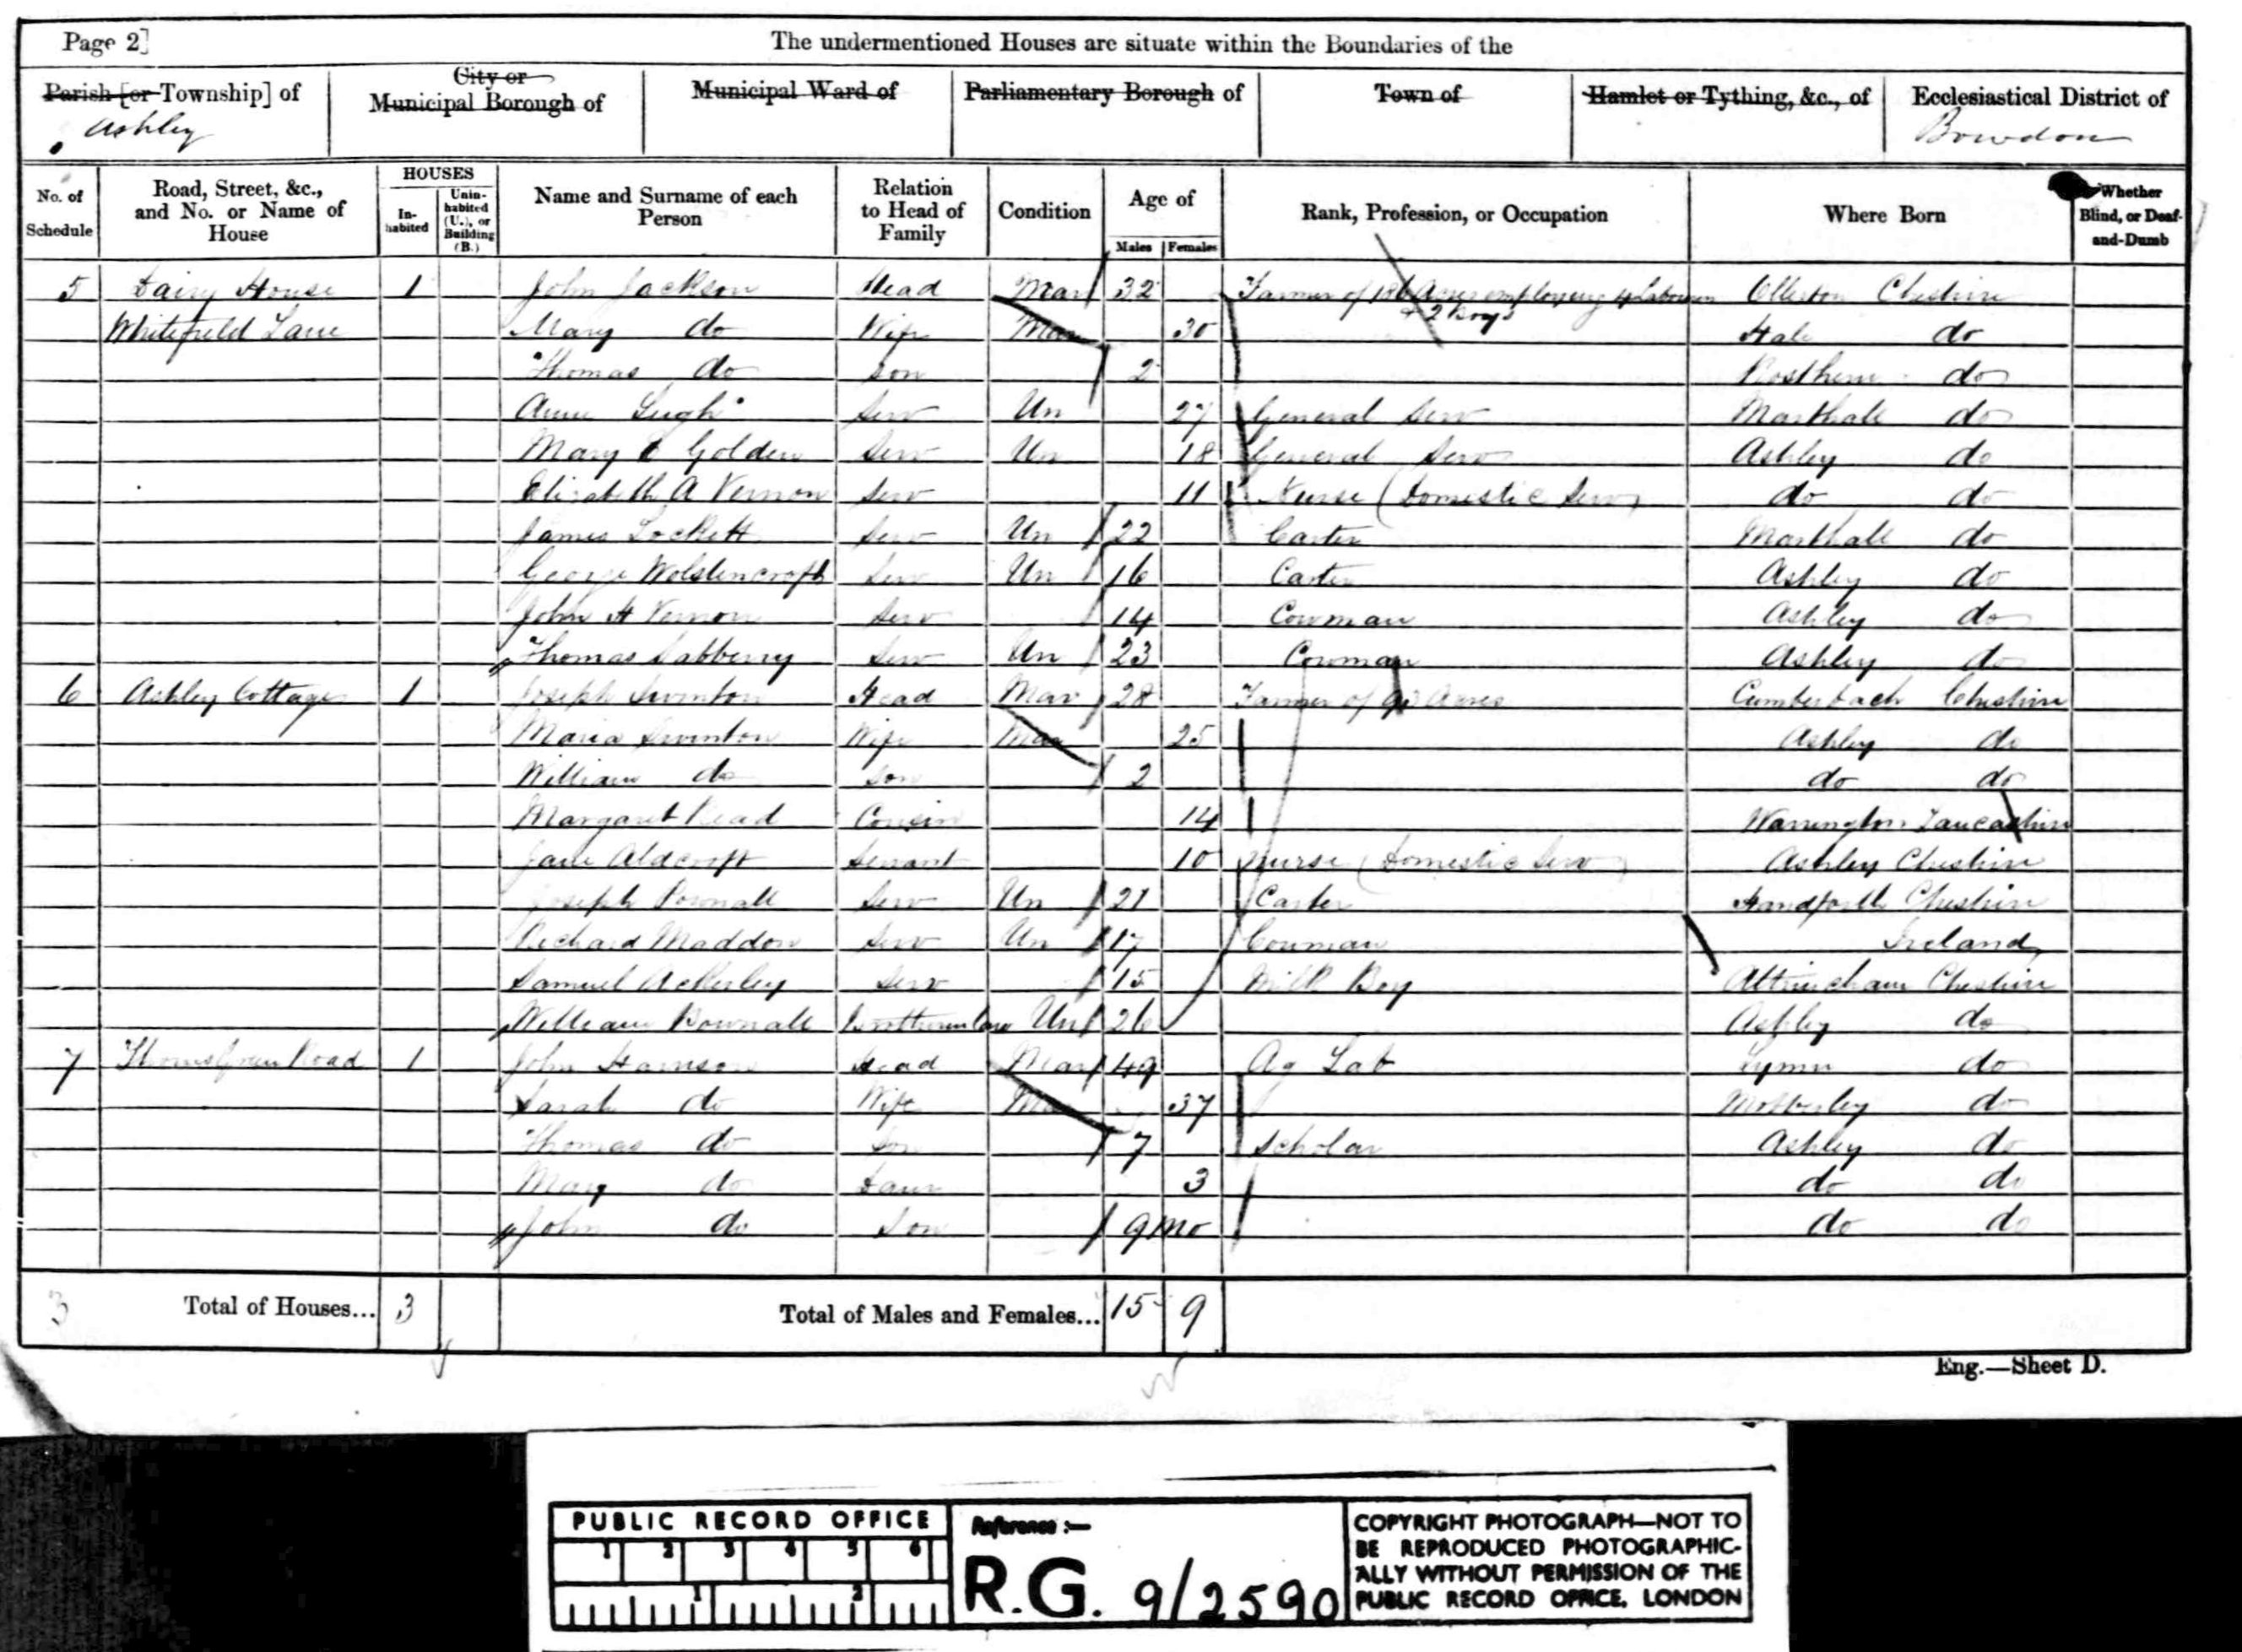 Page 2]
The undermentioned Houses are situate within the Boundaries of the
Parish [or Township] of
Ashley
City or
Municipal Borough of
Municipal Ward of
Parliamentary Borough of
Town of
Hamlet or Tything, &c., of
Ecclesiastical District of
Bowdon
No. of Schedule
Road, Street, &c., and No. or Name of House
HOUSES
In-habited
Unin-habited (U.), or Building (B.)
Name and Surname of each Person
Relation to Head of Family
Condition
Age of
Males Females
Rank, Profession, or Occupation
Where Born
Whether Blind, or Deaf-and-Dumb
5 Dairy House 1 John Jackson Head Mar 32 Farmer of Acres employing 4 Labourers Ollerton Cheshire
+ 2 Boys
Whitefield Lane Mary do Wife Mar 30 Hale do
Thomas do Son 2 Rosthern do
Anne Leigh Serv Un 27 General Serv Marthall do
Mary Golden Serv Un 18 General Serv Ashley do
Elizabeth A Vernon Serv 11 Nurse (Domestic Serv) do do
James Lockett Serv Un 22 Carter Marthall do
George Wolstencroft Serv Un 16 Carter Ashley do
John H Vernon Serv 14 Cowman Ashley do
Thomas Serv Un 23 Cowman Ashley do
6 Ashley Cottage 1 Joseph Swinton Head Mar 28 Farmer of Acres Cumberbach Cheshire
Maria Swinton Wife Mar 25 Ashley do
William do Son 2 do do
Margaret Read Cousin 14 Warrington Lancashire
Jane Aldcroft Servant 10 Nurse (Domestic Serv) Ashley Cheshire
Joseph Pownall Serv Un 21 Carter Handforth Cheshire
Richard Maddon Serv Un 17 Cowman Ireland
Samuel Ackerley Serv 15 Milk Boy Altrincham Cheshire
William Un 26 Ashley do
7 Thorns Green Road 1 John Harrison Head Mar 49 Ag Lab Lymm do
Sarah do Wife Mar 37 Mobberley do
Thomas do Son 7 Scholar Ashley do
Mary do Daur 3 do do
John do Son 9 mo do do
3 Total of Houses... 3 Total of Males and Females... 15 9
Eng.—Sheet D.
PUBLIC RECORD OFFICE
1 2 3 4 5 6
1 2
Reference :—
R.G. 9/2590
COPYRIGHT PHOTOGRAPH—NOT TO
BE REPRODUCED PHOTOGRAPHIC-
ALLY WITHOUT PERMISSION OF THE
PUBLIC RECORD OFFICE, LONDON